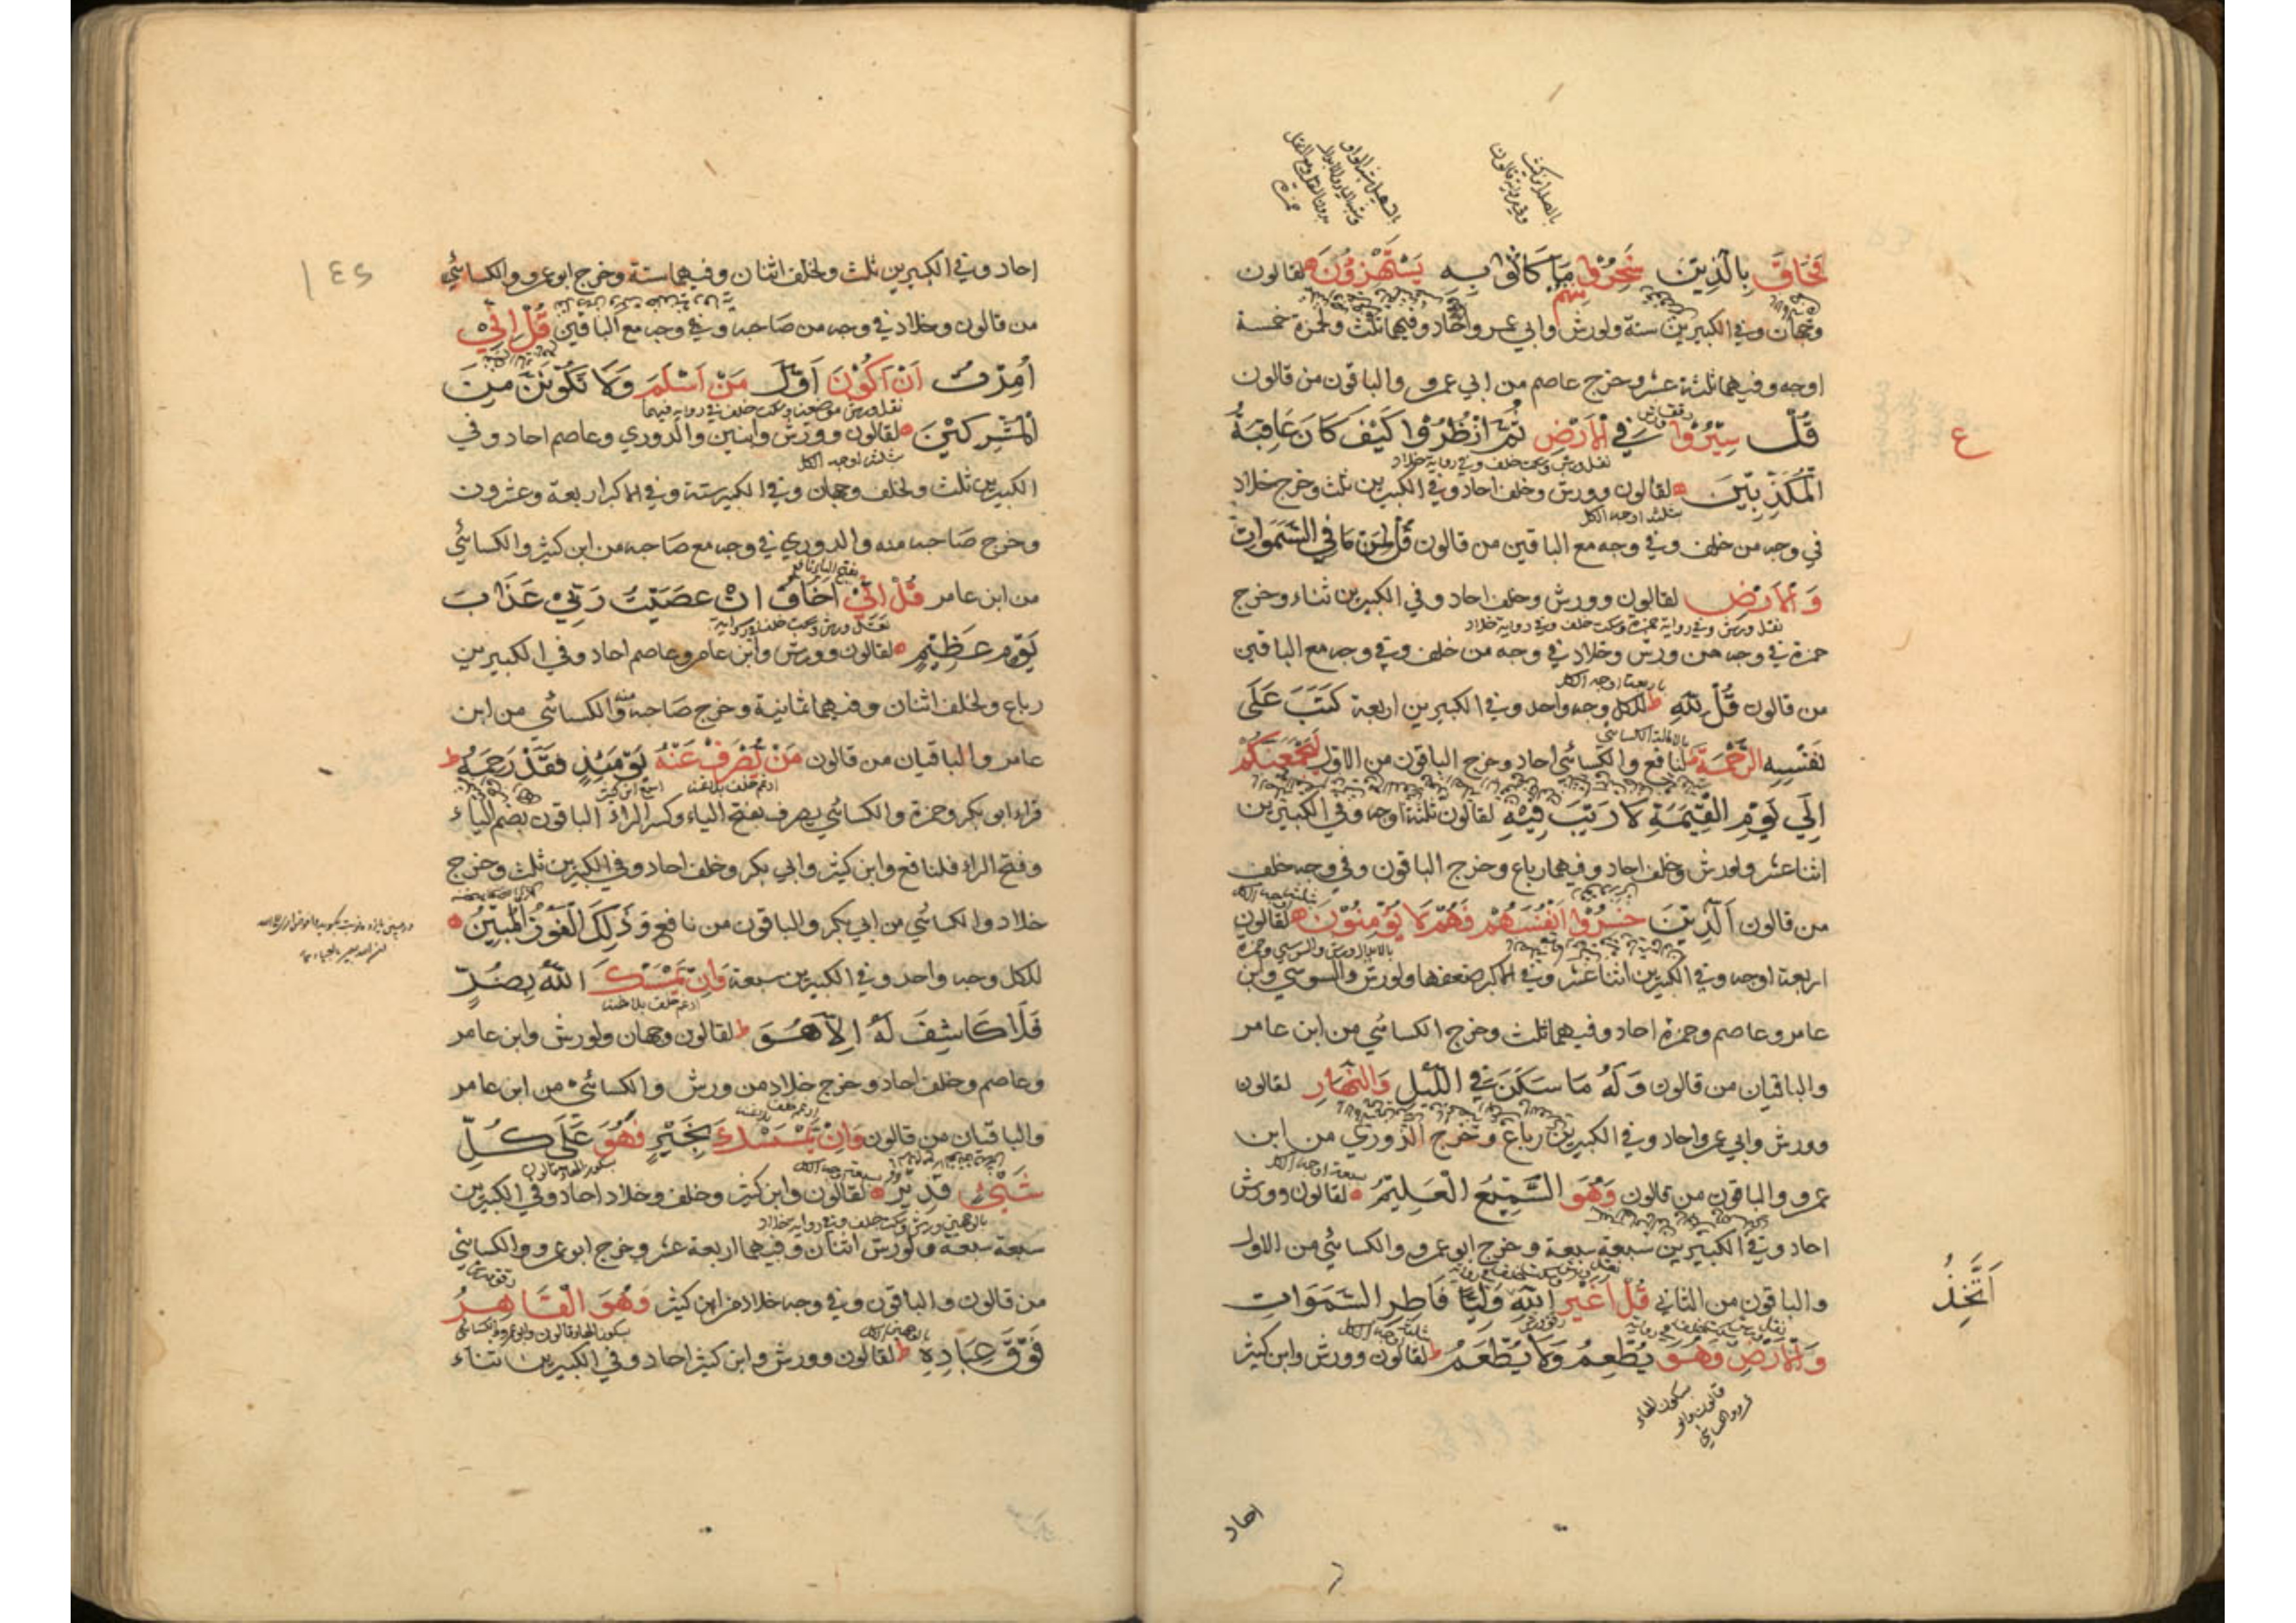 فَحَاقَ بِالَّذِينَ سَخِرُوا مِنْهُمْ مَا كَانُوا بِهِ يَسْتَهْزِؤُنَ لقالون
وجهان وفي الكبيرين ستة ولورش وابي عمرو احاد وفيهما ثلث ولحمزة خمسة
اوجه وفيهما ثلثة عشر وخرج عاصم من ابي عمرو والباقون من قالون
قُلْ سِيرُوا فِي الْاَرْضِ ثُمَّ انْظُرُوا كَيْفَ كَانَ عَاقِبَةُ
ع
نقل ورش وسكت خلف وفي رواية خلاد
الْمُكَذِّبِينَ لقالون وورش وخلف احاد وفي الكبيرين ثلث وخرج خلاد
بثلثة اوجه الكل
في وجه من خلف وفي وجه مع الباقين من قالون قُلْ لِمَنْ مَا فِي السَّمَوَاتِ
وَالْاَرْضِ لقالون وورش وخلف احاد وفي الكبيرين ثناء وخرج
حمزة في وجه من ورش وخلاد في وجه من خلف وفي وجه مع الباقين
باربعة اوجه الكل
من قالون قُلْ لِلّٰهِ ط للكل وجه واحد وفي الكبيرين اربعة كَتَبَ عَلَى
بالامالة الكسائي
نَفْسِهِ الرَّحْمَةَ لنافع والكسائي احاد وخرج الباقون من الاول لَيَجْمَعَنَّكُمْ
اِلَى يَوْمِ الْقِيٰمَةِ لَا رَيْبَ فِيْهِ لقالون ثلثة اوجه وفي الكبيرين
اثناعشر ولورش وخلف احاد وفيهما رباع وخرج الباقون وفي وجه خلف
من قالون اَلَّذِينَ خَسِرُوا اَنْفُسَهُمْ فَهُمْ لَا يُؤْمِنُوْنَ لقالون
بالابدال ورش والسوسي وحمزة
اربعة اوجه وفي الكبيرين اثناعشر وفي الاكبر ضعفها ولورش والسوسي وابن
عامر وعاصم وحمزة احاد وفيهما ثلث وخرج الكسائي من ابن عامر
والباقيان من قالون وَلَهُ مَا سَكَنَ فِي اللَّيْلِ وَالنَّهَارِ لقالون
وورش وابي عمرو احاد وفي الكبيرين رباع وخرج الدوري من ابن
سبعة اوجه الكل
عمرو والباقون من قالون وَهُوَ السَّمِيْعُ الْعَلِيْمُ لقالون وورش
احاد وفي الكبيرين سبعة سبعة وخرج ابو عمرو والكسائي من الاول
والباقون من الثاني قُلْ اَغَيْرَ اللّٰهِ وَلِيًّا فَاطِرِ السَّمَوَاتِ
اَتَّخِذُ
وَالْاَرْضِ وَهُوَ يُطْعِمُ وَلَا يُطْعَمُ ط لقالون وورش وابن كثير
سكون الهاء
قالون وابو
عمرو والكسائي
احاد
١٤٥
احاد وفي الكبيرين ثلث ولخلف اثنان وفيهما ستة وخرج ابو عمرو والكسائي
من قالون وخلاد في وجه من صاحبه وفي وجه مع الباقين قُلْ اِنِّيْ
اُمِرْتُ اَنْ اَكُوْنَ اَوَّلَ مَنْ اَسْلَمَ وَلَا تَكُوْنَنَّ مِنَ
الْمُشْرِكِيْنَ لقالون وورش وابنين والدوري وعاصم احاد وفي
بثلثة اوجه الكل
الكبيرين ثلث ولخلف وجهان وفي الكبير ستة وفي الاكبر اربعة وعشرون
وخرج صاحبه منه والدوري في وجه مع صاحبه من ابن كثير والكسائي
من ابن عامر قُلْ اِنِّيْ اَخَافُ اِنْ عَصَيْتُ رَبِّيْ عَذَابَ
يَوْمٍ عَظِيْمٍ لقالون وورش وابن عامر وعاصم احاد وفي الكبيرين
رباع ولخلف اثنان وفيهما ثمانية وخرج صاحبه منه والكسائي من ابن
عامر والباقيان من قالون مَنْ يُصْرَفْ عَنْهُ يَوْمَئِذٍ فَقَدْ رَحِمَهُ ط
قراء ابو بكر وحمزة والكسائي يصرف بفتح الياء وكسر الراء الباقون بضم الياء
وفتح الراء فلنافع وابن كثير وابي بكر وخلف احاد وفي الكبيرين ثلث وخرج
خلاد والكسائي من ابي بكر والباقون من نافع وَذٰلِكَ الْفَوْزُ الْمُبِيْنُ
للكل وجه واحد وفي الكبيرين سبعة وَاِنْ يَمْسَسْكَ اللّٰهُ بِضُرٍّ
ادغم خلف بلا غنة
فَلَا كَاشِفَ لَهُ اِلَّا هُوَ ط لقالون وجهان ولورش وابن عامر
وعاصم وخلف احاد وخرج خلاد من ورش والكسائي من ابن عامر
والباقيان من قالون وَاِنْ يَمْسَسْكَ بِخَيْرٍ فَهُوَ عَلَى كُلِّ
شَيْءٍ قَدِيْرٌ لقالون وابن كثير وخلف وخلاد احاد وفي الكبيرين
سبعة سبعة ولورش اثنان وفيهما اربعة عشر وخرج ابو عمرو والكسائي
من قالون والباقون وفي وجه خلاد من ابن كثير وَهُوَ الْقَاهِرُ
سكون الهاء قالون وابو عمرو والكسائي
فَوْقَ عِبَادِهِ ط لقالون وورش وابن كثير احاد وفي الكبيرين ثناء